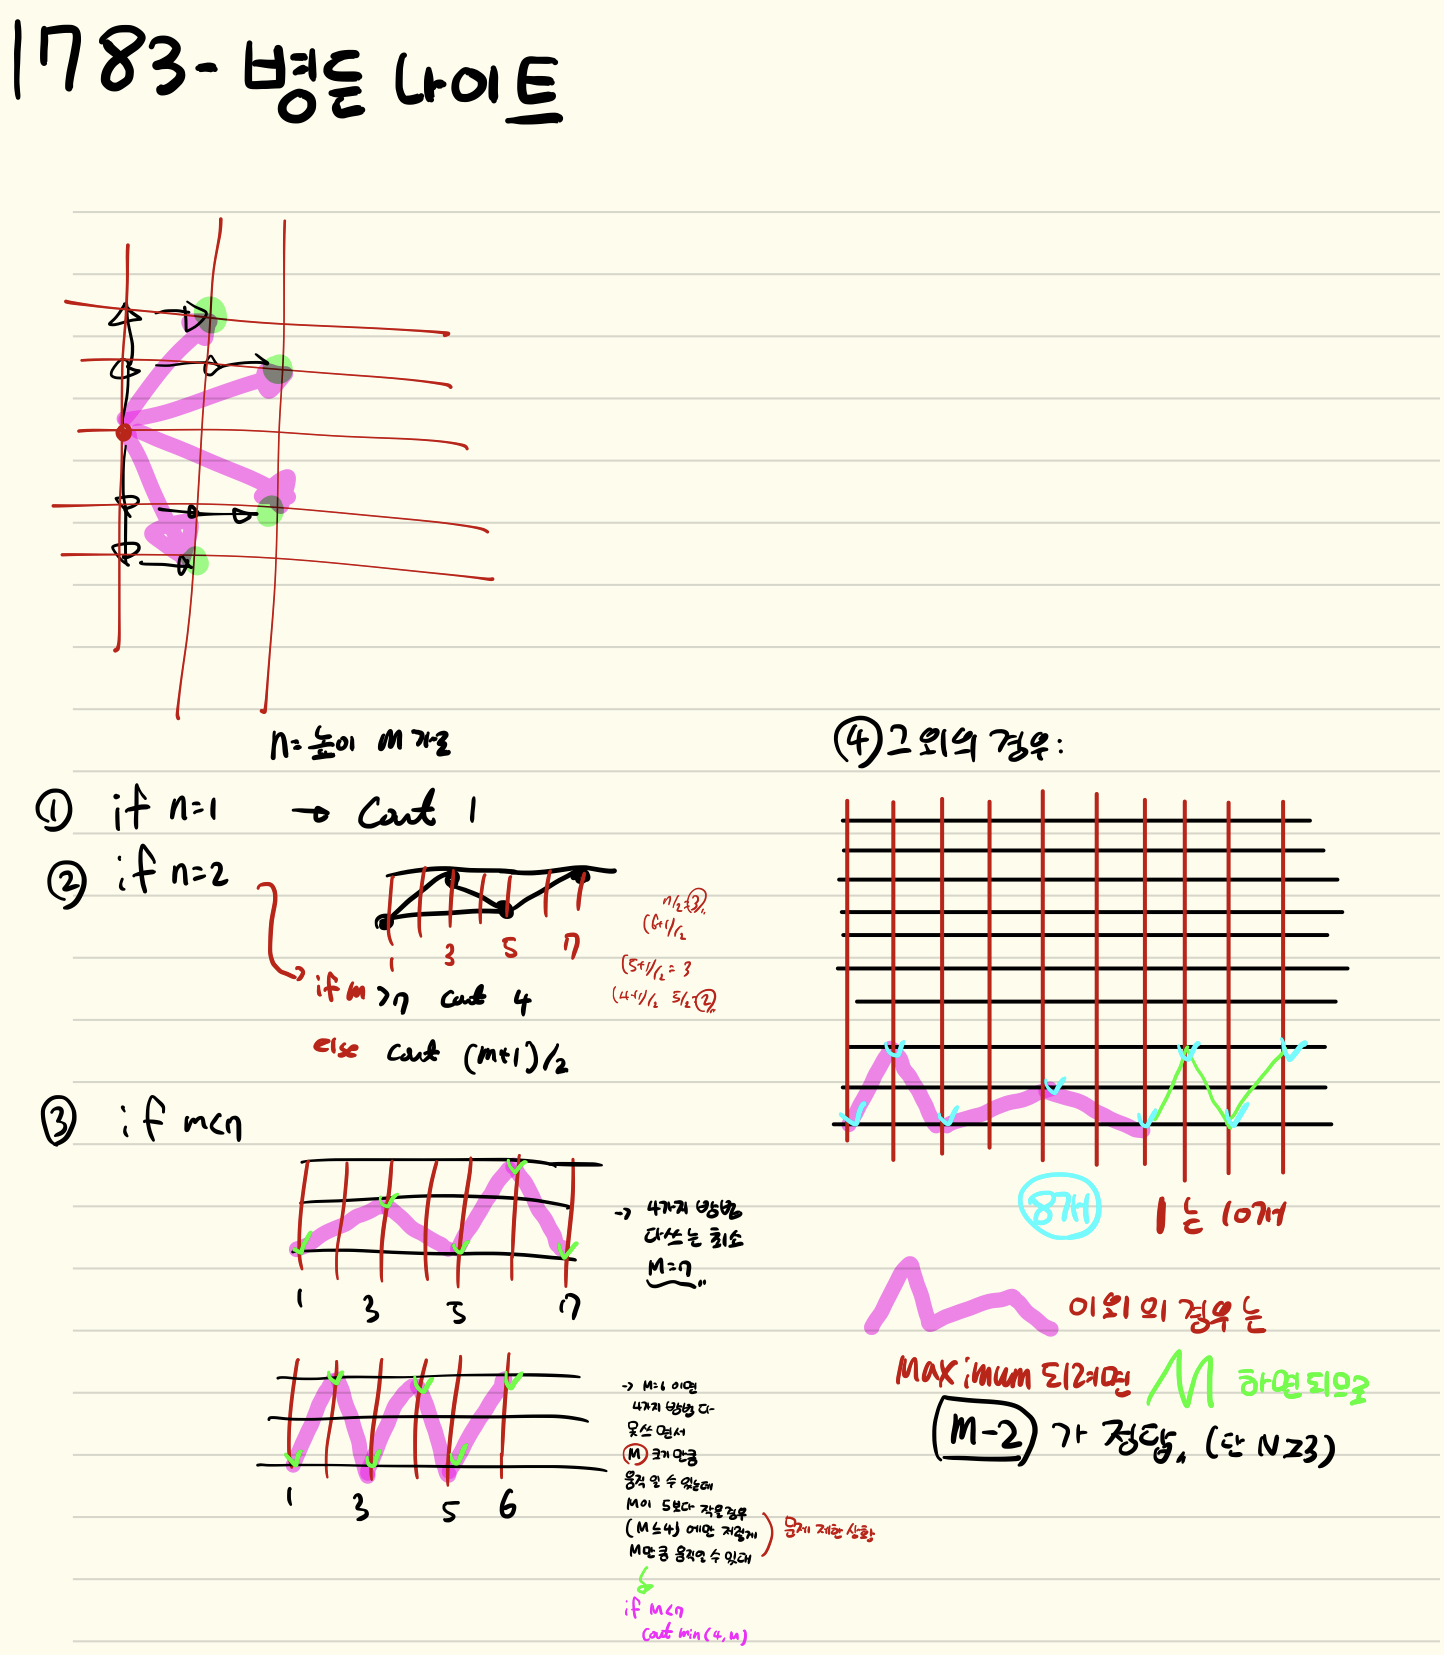 1783 - 병든 나이트
n = 높이 m 가로
① if n=1 → Cout 1
② if n=2
1 3 5 7
n/2=③
(6+1)/2
(5+1)/2 = 3
(4+1)/2 5/2=②
if m >7 Cout 4
else Cout (m+1)/2
③ if m<7
1 3 5 7
→ 4가지 방법
다쓰는 최소
M=7
1 3 5 6
→ M=6 이면
4가지 방법 다
못쓰면서
M 크기 만큼
움직일 수 있는데
M이 5보다 작을경우
(M≤4) 에만 저렇게
M만큼 움직일 수 있대
문제 제한 상황
if M<7
Cout min(4, m)
④ 그 외의 경우:
8개
1는 10개
이외의 경우는
Maximum 되려면 M 하면되므로
M-2 가 정답. (단 N≥3)